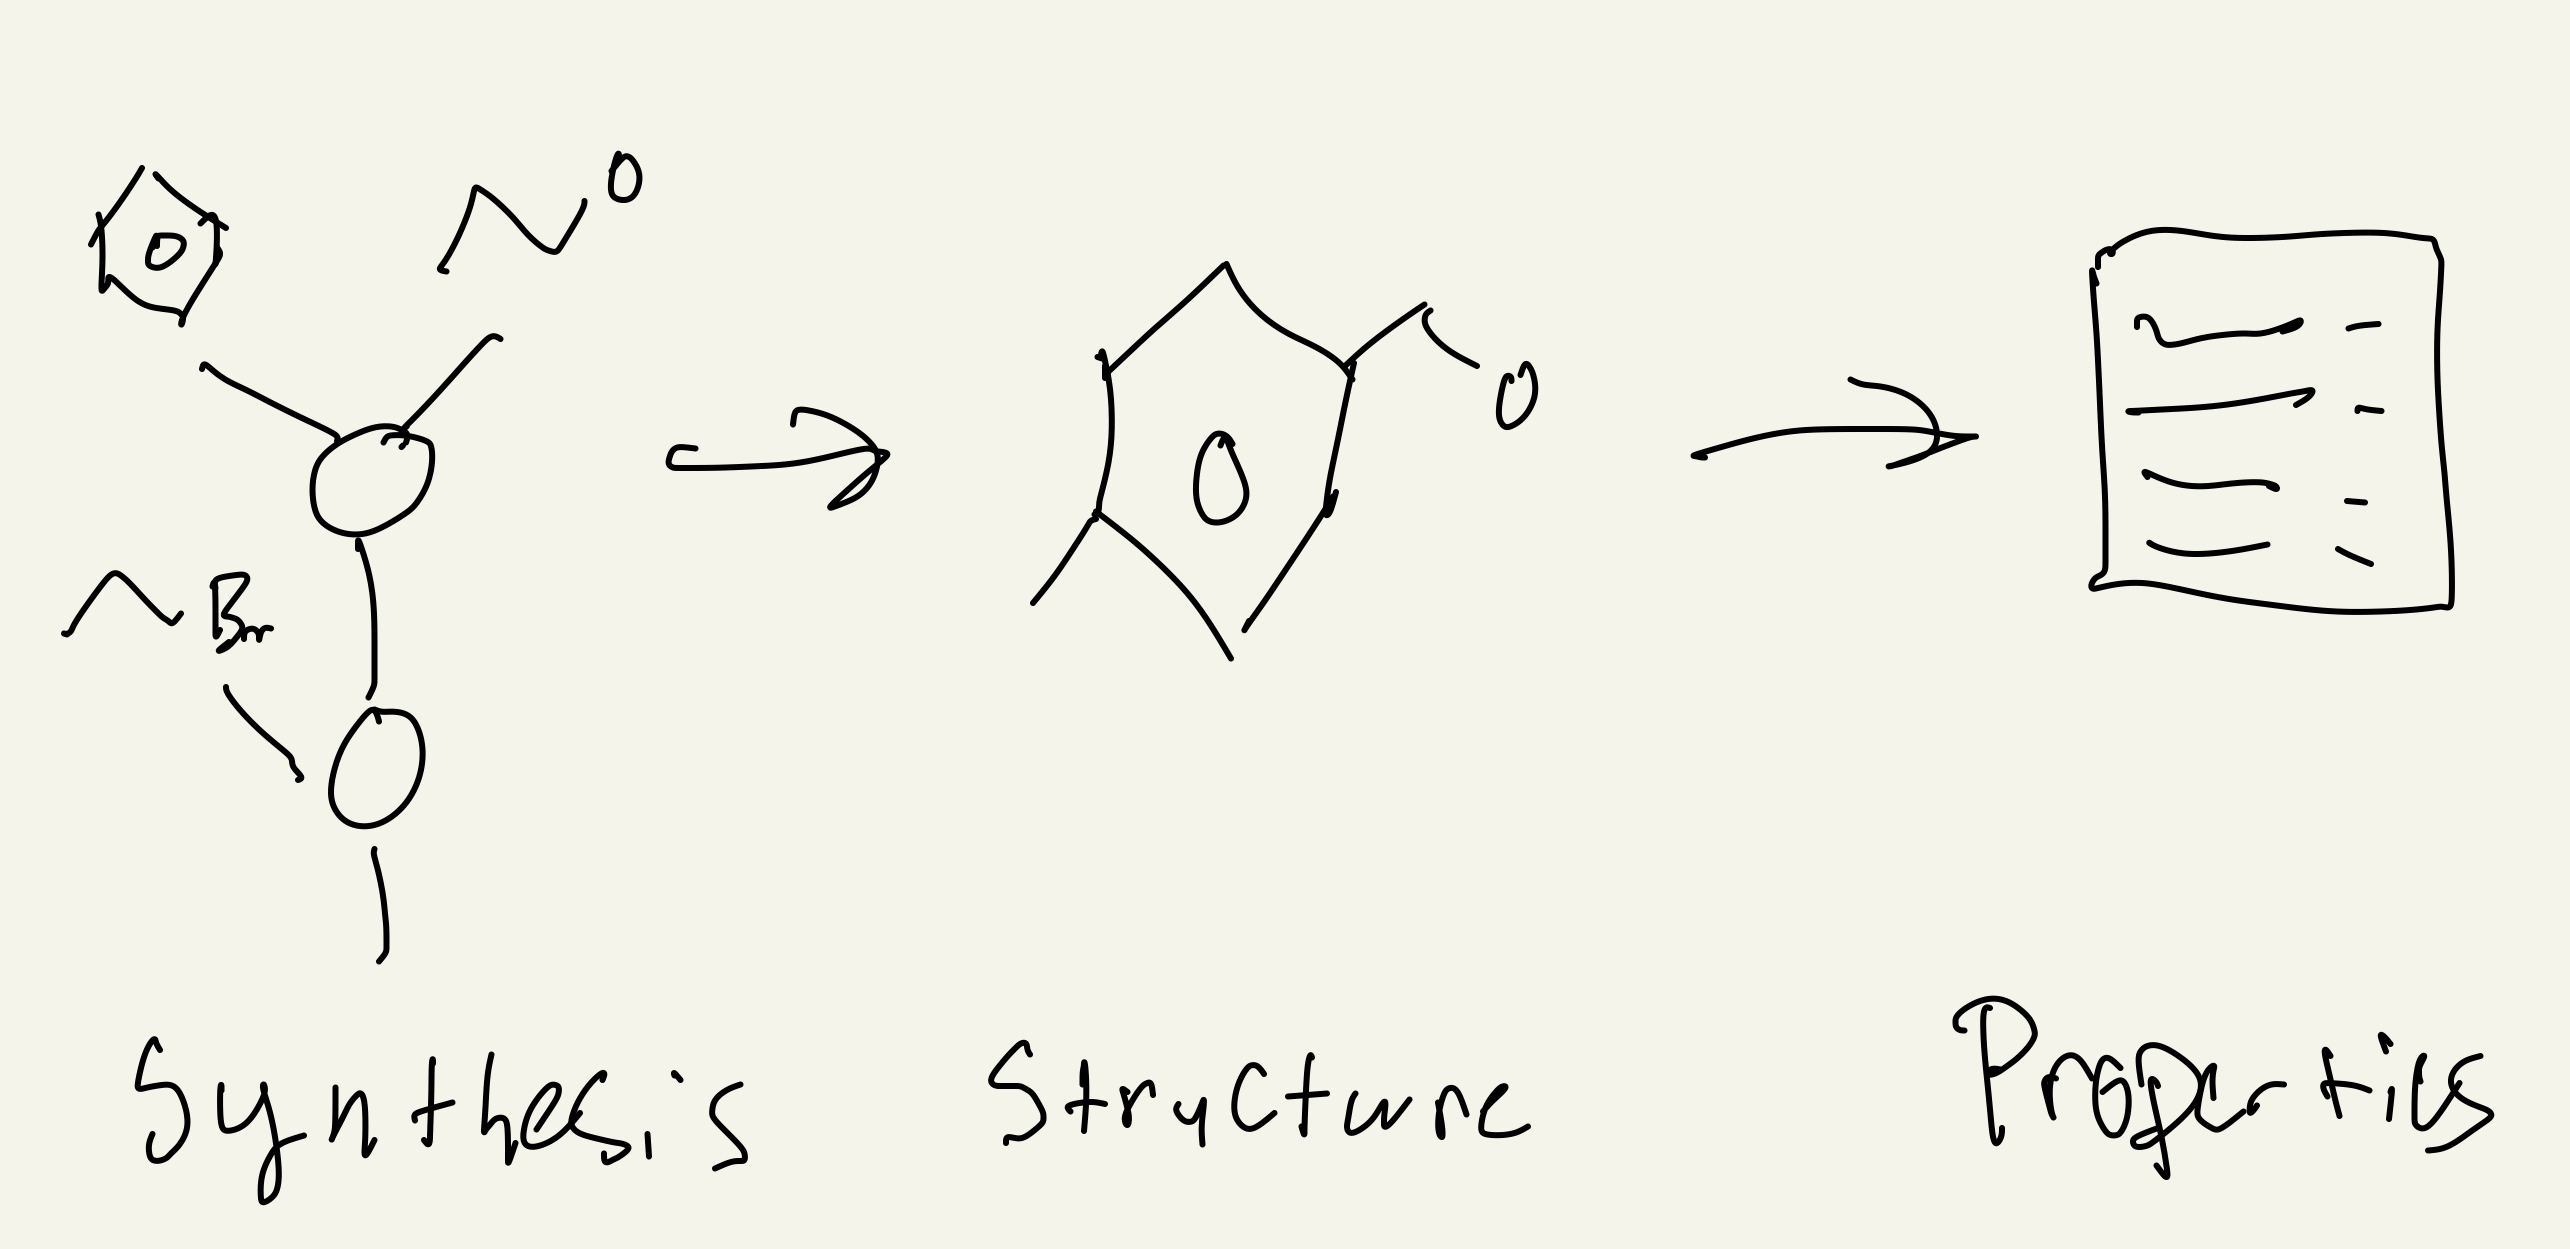 O
Br
O
Synthesis
Structure
Properties